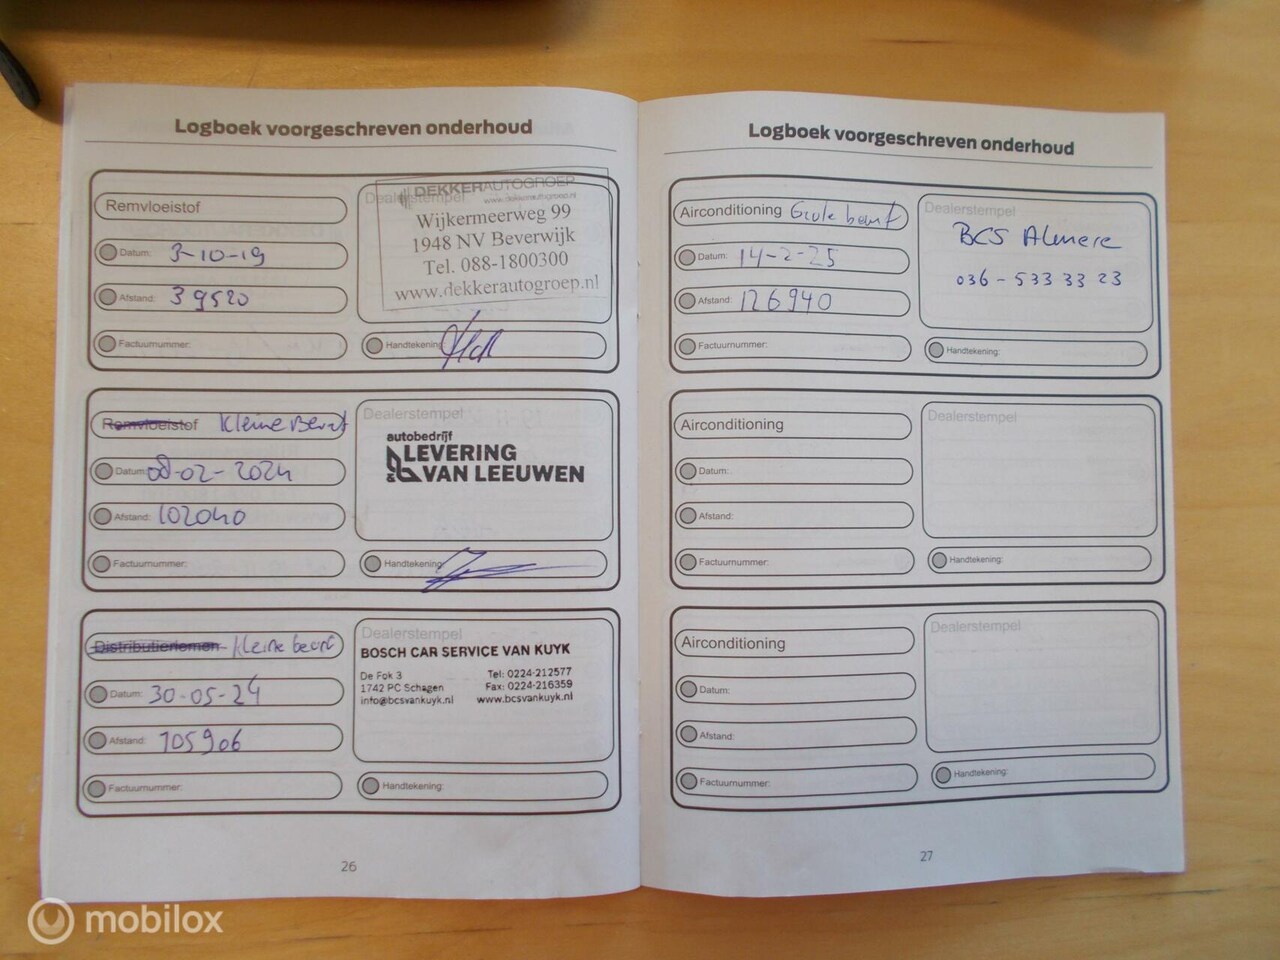 Logboek voorgeschreven onderhoud
Remvloeistof
Datum: 3-10-19
Afstand: 39520
Factuurnummer:
Dealerstempel
DEKKERAUTOGROEP
www.dekkerautogroep.nl
Wijkermeerweg 99
1948 NV Beverwijk
Tel. 088-1800300
www.dekkerautogroep.nl
Handtekening:
Remvloeistof Kleine Beurt
Datum: 08-02-2024
Afstand: 102040
Factuurnummer:
Dealerstempel
autobedrijf
LEVERING
& VAN LEEUWEN
Handtekening:
Distributieriemen kleine beurt
Datum: 30-05-24
Afstand: 105906
Factuurnummer:
Dealerstempel
BOSCH CAR SERVICE VAN KUYK
De Fok 3 Tel: 0224-212577
1742 PC Schagen Fax: 0224-216359
info@bcsvankuyk.nl www.bcsvankuyk.nl
Handtekening:
26
Logboek voorgeschreven onderhoud
Airconditioning Grote beurt
Datum: 14-2-25
Afstand: 126940
Factuurnummer:
Dealerstempel
BCS Almere
036-533 33 23
Handtekening:
Airconditioning
Datum:
Afstand:
Factuurnummer:
Dealerstempel
Handtekening:
Airconditioning
Datum:
Afstand:
Factuurnummer:
Dealerstempel
Handtekening:
27
mobilox